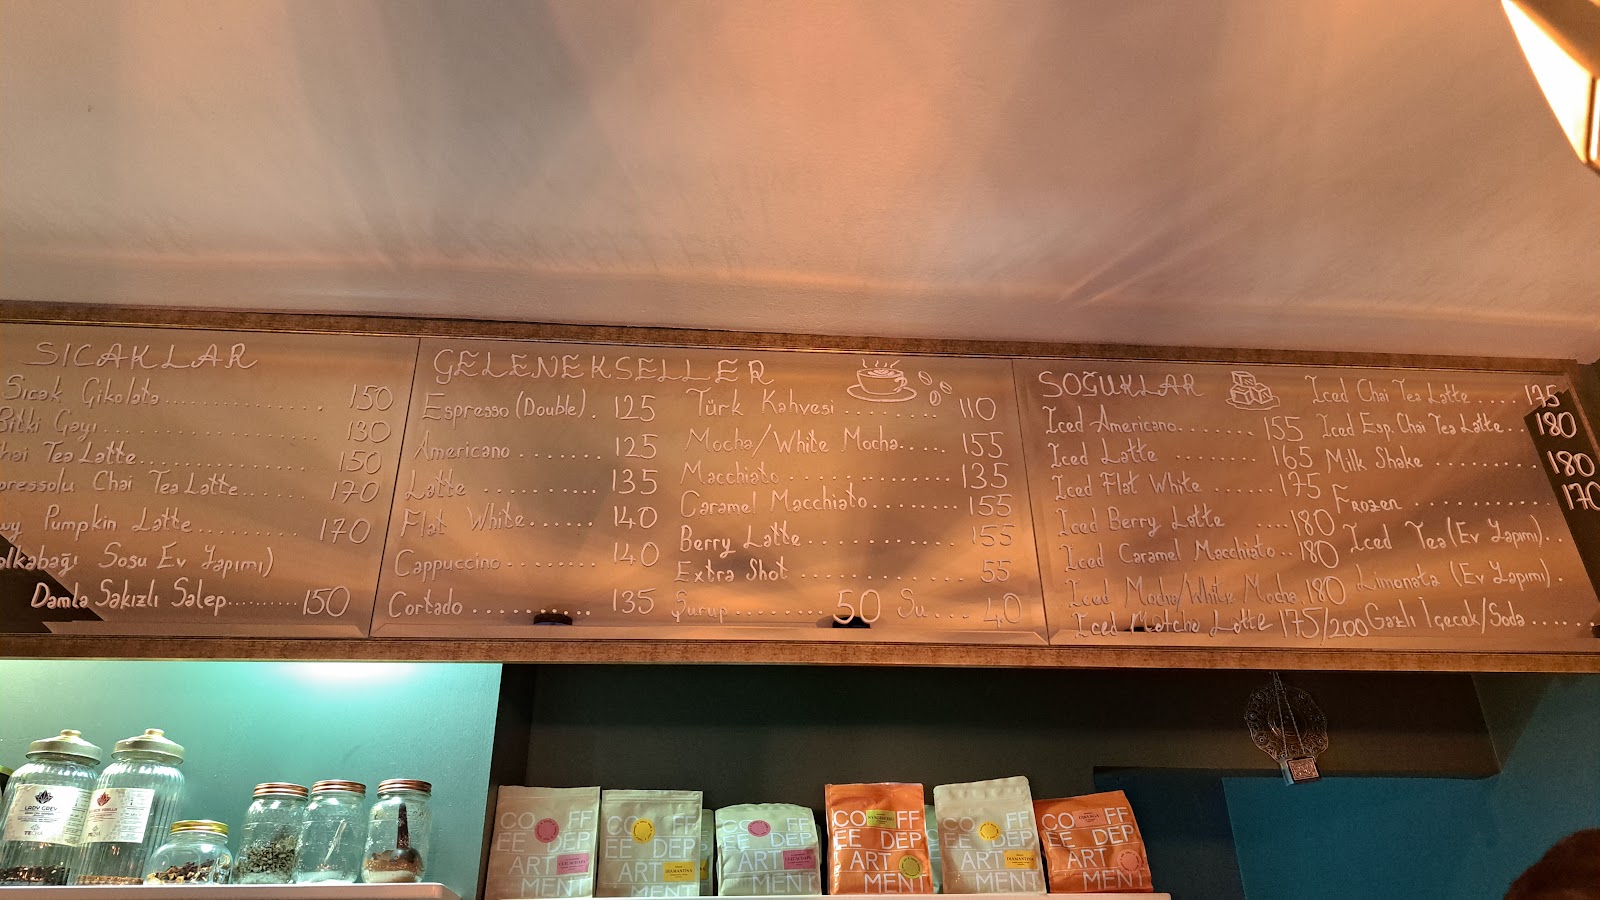 SICAKLAR
Sıcak Çikolata 150
Bitki Çayı 130
Chai Tea Latte 150
Chai Tea Latte 170
Pumpkin Latte 170
Sosu Ev Yapımı)
Damla Sakızlı Salep 150
GELENEKSELLER
Espresso (Double) 125
Americano 125
Latte 135
Flat White 140
Cappuccino 140
Cortado 135
Türk Kahvesi 110
Mocha/White Mocha 155
Macchiato 135
Caramel Macchiato 155
Berry Latte 155
Extra Shot 55
Şurup 50 Su 40
SOĞUKLAR
Iced Americano 155
Iced Latte 165
Iced Flat White 175
Iced Berry Latte 180
Iced Caramel Macchiato 180
Iced Mocha/White Mocha 180
Iced Matcha Latte 175/200
Iced Chai Tea Latte 175
Iced Esp. Chai Tea Latte 180
Milk Shake 180
Frozen 170
Iced Tea (Ev Yapımı)
Limonata (Ev Yapımı)
Gazlı İçecek/Soda
LADY GREY
CO FF
EE DEP
ART
MENT
CO FF
EE DEP
ART
MENT
CO FF
EE DEP
ART
MENT
CO FF
EE DEP
ART
MENT
CO FF
EE DEP
ART
MENT
CO FF
EE DEP
ART
MENT